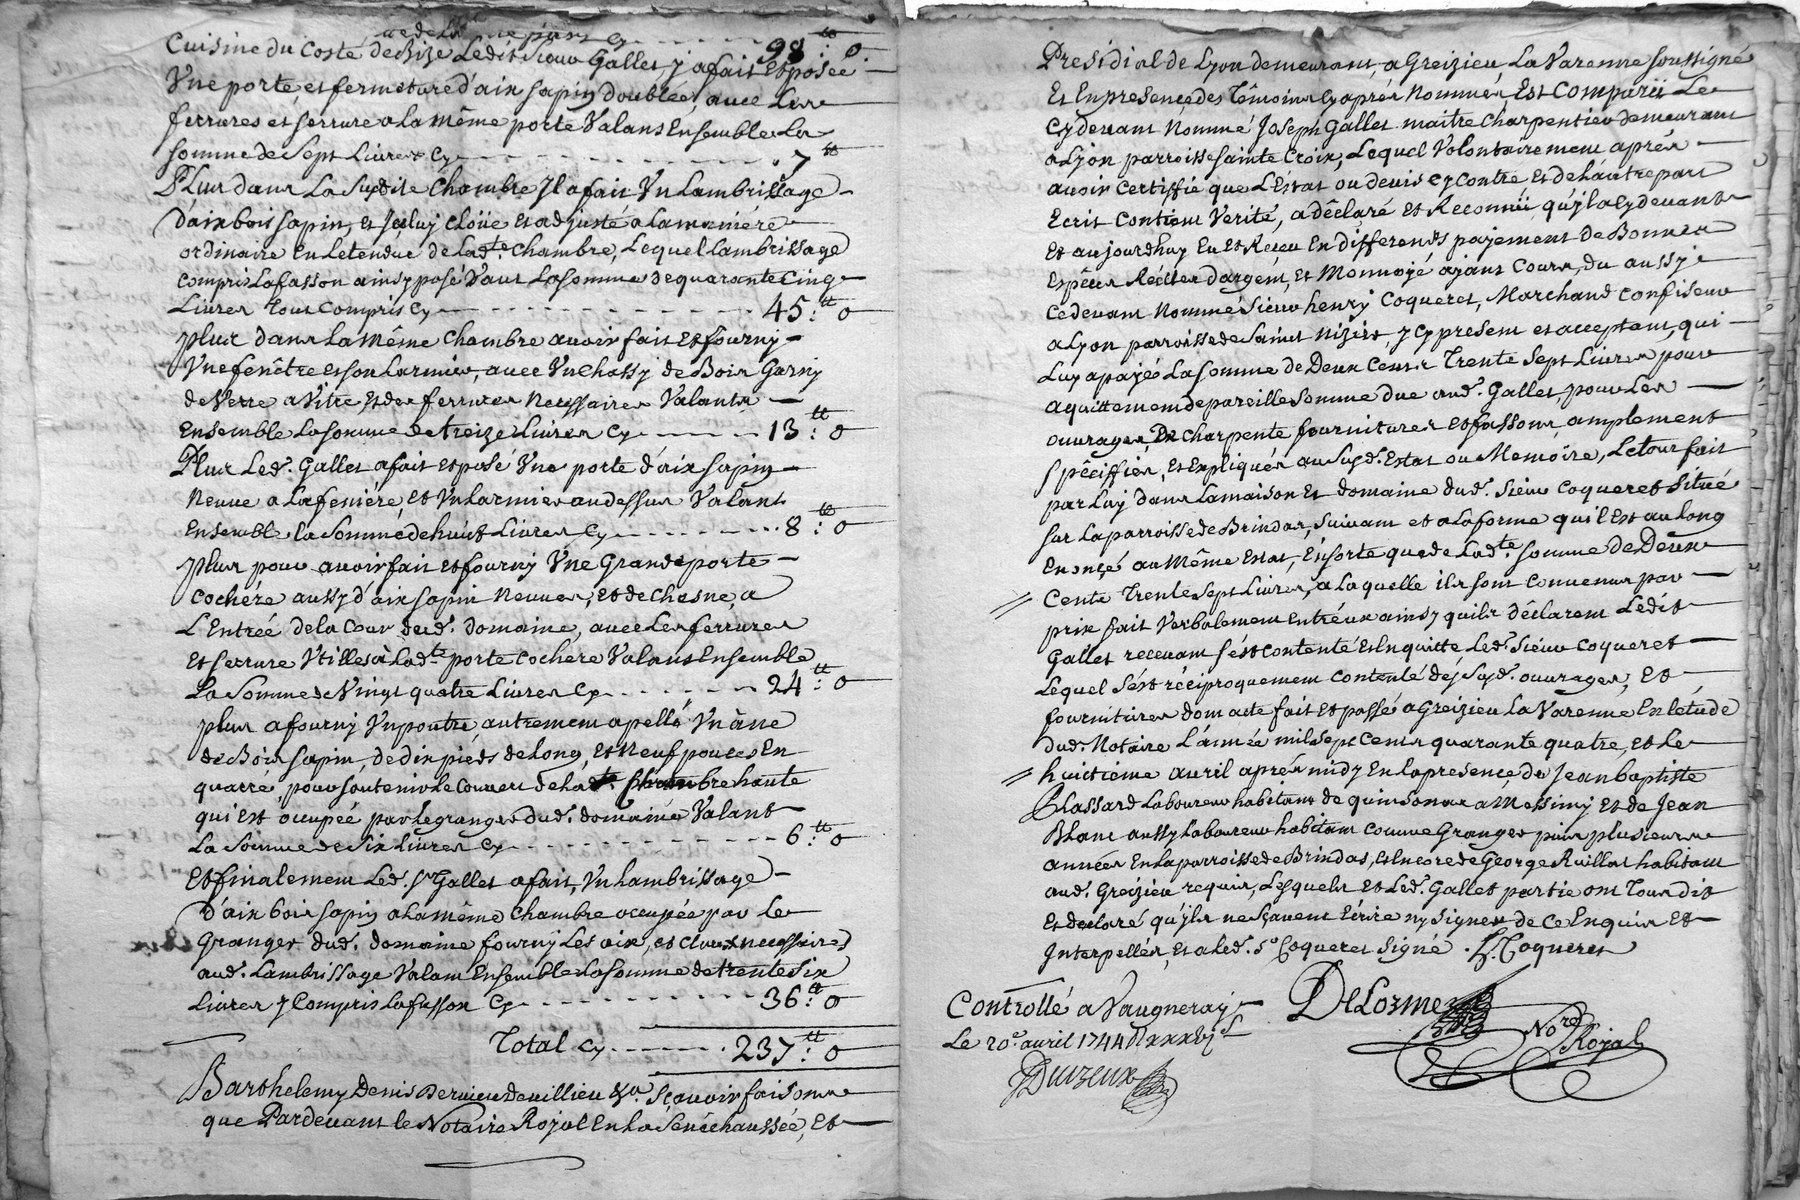 98 : 0
Cuisine du Costé de Bize Ledit Sieur Gallet y a fait et posée
Vne porte, et fermeture d'aix sapin doublée, avec Les
ferrures et serrure a la même porte Valans Ensemble La
somme de Sept Livres Cy 7 tt
Plus dans La Susdite Chambre Il a fait Vn Lambrissage
d'aix bois sapin, et Iceluy cloüé et adjusté a La maniére
ordinaire en Letendue de Lad.te Chambre, Lequel Lambrissage
compris La fasson ainsy posé Vaut La somme de quarante Cinq
Livres Tout Compris Cy 45 tt : 0
plus dans La même Chambre avoir fait et fourny
Vne fenêtre et son Larmier, avec Vn Chassy de Bois Garny
de Verre a Vitre et des ferrures Necessaires Valants
Ensemble La somme de treize Livres Cy 13 tt : 0
Plus Led. Gallet a fait et posé Vne porte d'aix sapin
Neuve a La feniére, et Vn Larmier au dessus Valant
Ensemble la Somme de huit Livres Cy 8 tt : 0
plus pour avoir fait et fourny Vne Grande porte
cochére aussy d'aix sapin Neuves, et de Chesne, a
L'Entrée de la Cour dud. domaine, avec Les ferrures
Et serrure Vtilles à Lad.te porte cochere Valans Ensemble
La Somme de Vingt quatre Livres Cy 24 tt : 0
plus a fourny Vn poutre, autrement apellé Vn âne
de Bois sapin, de dix pieds de long, et Neuf pouces En
quarré, pour soutenir Le Couvert de Lad.te Chambre haute
qui Est ocupée par le granger dud. domaine Valant
La Somme de Six Livres Cy 6 tt : 0
Et finalement Led. Sr Gallet a fait, Vn Lambrissage
d'aix bois sapin a La même Chambre occupée par Le
Granger dud. domaine fourny Les aix, et clous necessaires
aud. Lambrissage Valant Ensemble La somme de trente Six
Livres y Compris La fasson Cy 36 tt : 0
Total Cy 237 tt : 0
Barthelemy Denis Dervieu Scavoir faisons
que Pardevant le Notaire Royal En La Sénéchaussée, et
Presidial de Lyon demeurant, a Greizieu La Varenne soussigné
Et En presence des Témoins Cy aprés Nommés Est Comparû Le
Cy devant Nommé Joseph Gallet maitre Charpentier demeurant
a Lyon parroisse Sainte Croix, Lequel Volontairement aprés
avoir Certiffié que L'Estat ou devis cy contre, et de L'autre part
Ecrit Contient Verité, a déclaré et Reconnû, qu'il a Cy devant
Et aujourdhuy Eu et Receu En differends payement de Bonnes
Espéces Réelles d'argent, et Monnoyé ayant Cours, du aussy
Ce devant Nommé Sieur henry Coqueret, Marchand Confiseur
a Lyon parroisse de Saint Nizier, y Cy present et acceptant, qui
Luy a payée La somme de Deux Cents Trente Sept Livres pour
aquittement de pareille Somme due aud. Gallet, pour Les
ouvrages, De Charpente fournitures et fassons, amplement
Spéciffiés, et Expliqués au Susd. Estat ou Memoire, Le tout fait
par Luy dans La maison et domaine dud. Sieur Coqueret Situé
sur La parroisse de Brindas, suivant et a La forme qu'il Est au long
Enoncé au Même Estat, Ensorte que de Lad.te somme de Deux
Cents Trente Sept Livres, a Laquelle ils sont Convenus par
prix fait Verbalement Entr'eux ainsy qu'ils déclarent Ledit
Gallet recevant s'est contenté et En quitte Led. Sieur Coqueret
Lequel S'est réciproquement contenté des Susd. ouvrages, et
fournitures dont acte fait et passé a Greizieu La Varenne En létude
dud. Notaire L'année mil Sept Cents quarante quatre, et Le
huitiéme avril aprés midy En La presence de Jean baptiste
Chassard Laboureur habitant de quinsonat a Messimy et de Jean
Blanc aussy Laboureur habitant comme Granger puis plusieurs
années en La parroisse de Brindas, et Encore de George habitant
aud. Greizieu requis, Lesquels et Led. Gallet partie ont Tous dit
Et declaré qu'ils ne sçavent Ecrire ny Signer de ce Enquis et
Interpellés, et a Led. Sr Coqueret Signé. H. Coqueret
Controllé a Vaugneray
Le 20e avril 1744
DeLorme
No.re Royal